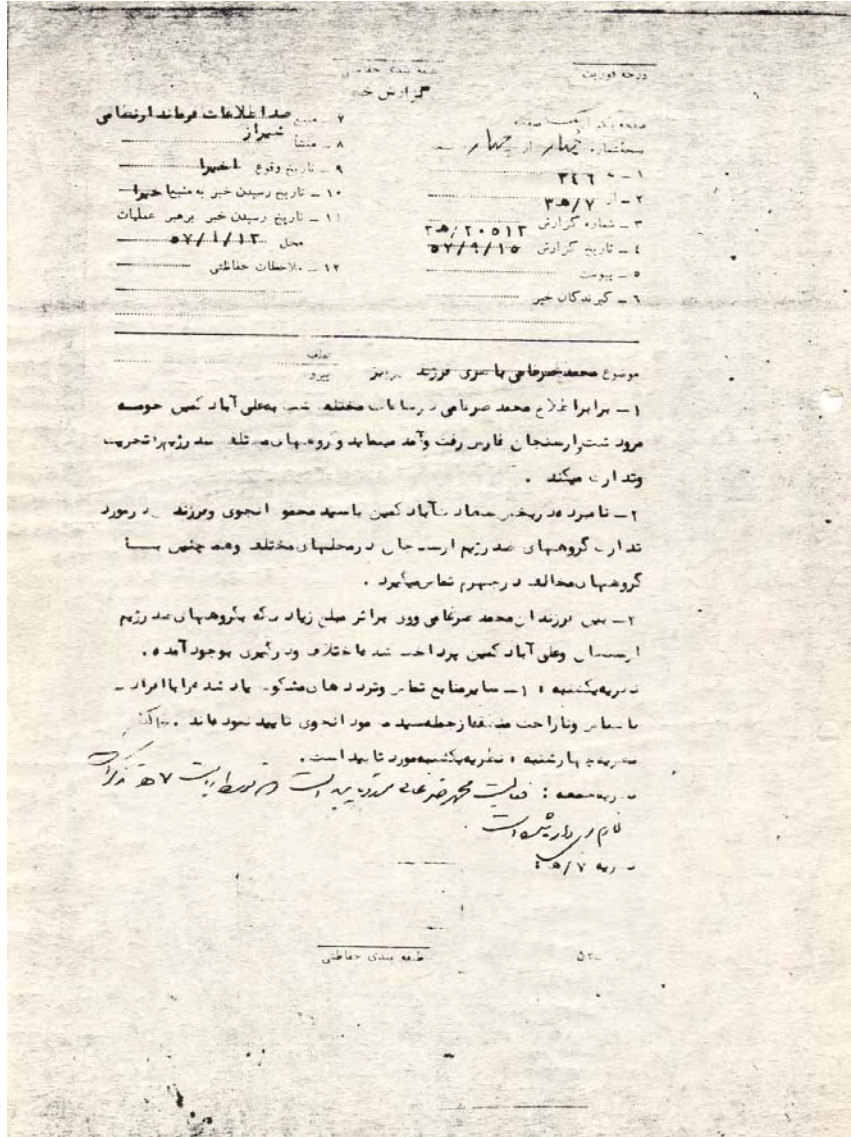 درجه فوریت
طبقه بندی حفاظتی
گزارش خبر
صفحه یکم از صفحه
نسخه شماره چهار از چهار
۱ ـ به ۳٤٦
۲ ـ از ۷/ه۳
۳ ـ شماره گزارش ۲۰۵۱۲/ه۳
٤ ـ تاریخ گزارش ۵۷/۹/۱۵
۵ ـ پیوست
٦ ـ گیرندگان خبر
۷ ـ منبع ضد اطلاعات فرماندار نظامی
شیراز
۸ ـ منشأ
۹ ـ تاریخ وقوع اخیرا
۱۰ ـ تاریخ رسیدن خبر به منبع اخیرا
۱۱ ـ تاریخ رسیدن خبر برهبر عملیات
محل
۱۲ ـ ملاحظات حفاظتی
موضوع محمد ضرغامی فرزند
عطف
پیرو
۱ـ برابر اطلاع محمد ضرغامی در ساعات مختلف شب به علی آباد کمین حومه
مرودشت وارسنجان فارس رفت وآمد مینماید و گروههای مختلف ضد رژیم را تحریک
وتدارک میکند .
۲ـ نامبرده در بخش سعادت آباد کمین با سید محمود انجوی وفرزند در مورد
تدارک گروههای ضد رژیم در محلهای مختلف وهم چنین بــا
گروههای مخالف در جهرم تماس میگیرد .
۳ـ بین فرزندان محمد ضرغامی ووی براثر مبلغ زیادی که بگروههای ضد رژیم
ارسنجان وعلی آباد کمین پرداخت شده اختلاف ودرگیری بوجود آمده .
نظریه یکشنبه : ۱ـ سایر منابع تماس وترددهای مشکوک یاد شده را با افراد ـ
وناراحت منطقه از جمله سید محمود انجوی تایید نموده اند .
نظریه چهارشنبه : نظریه یکشنبه مورد تایید است .
نظریه جمعه : فعالیت محمد ضرغامی مورد تایید است
نظریه ۷/ه :
طبقه بندی حفاظتی